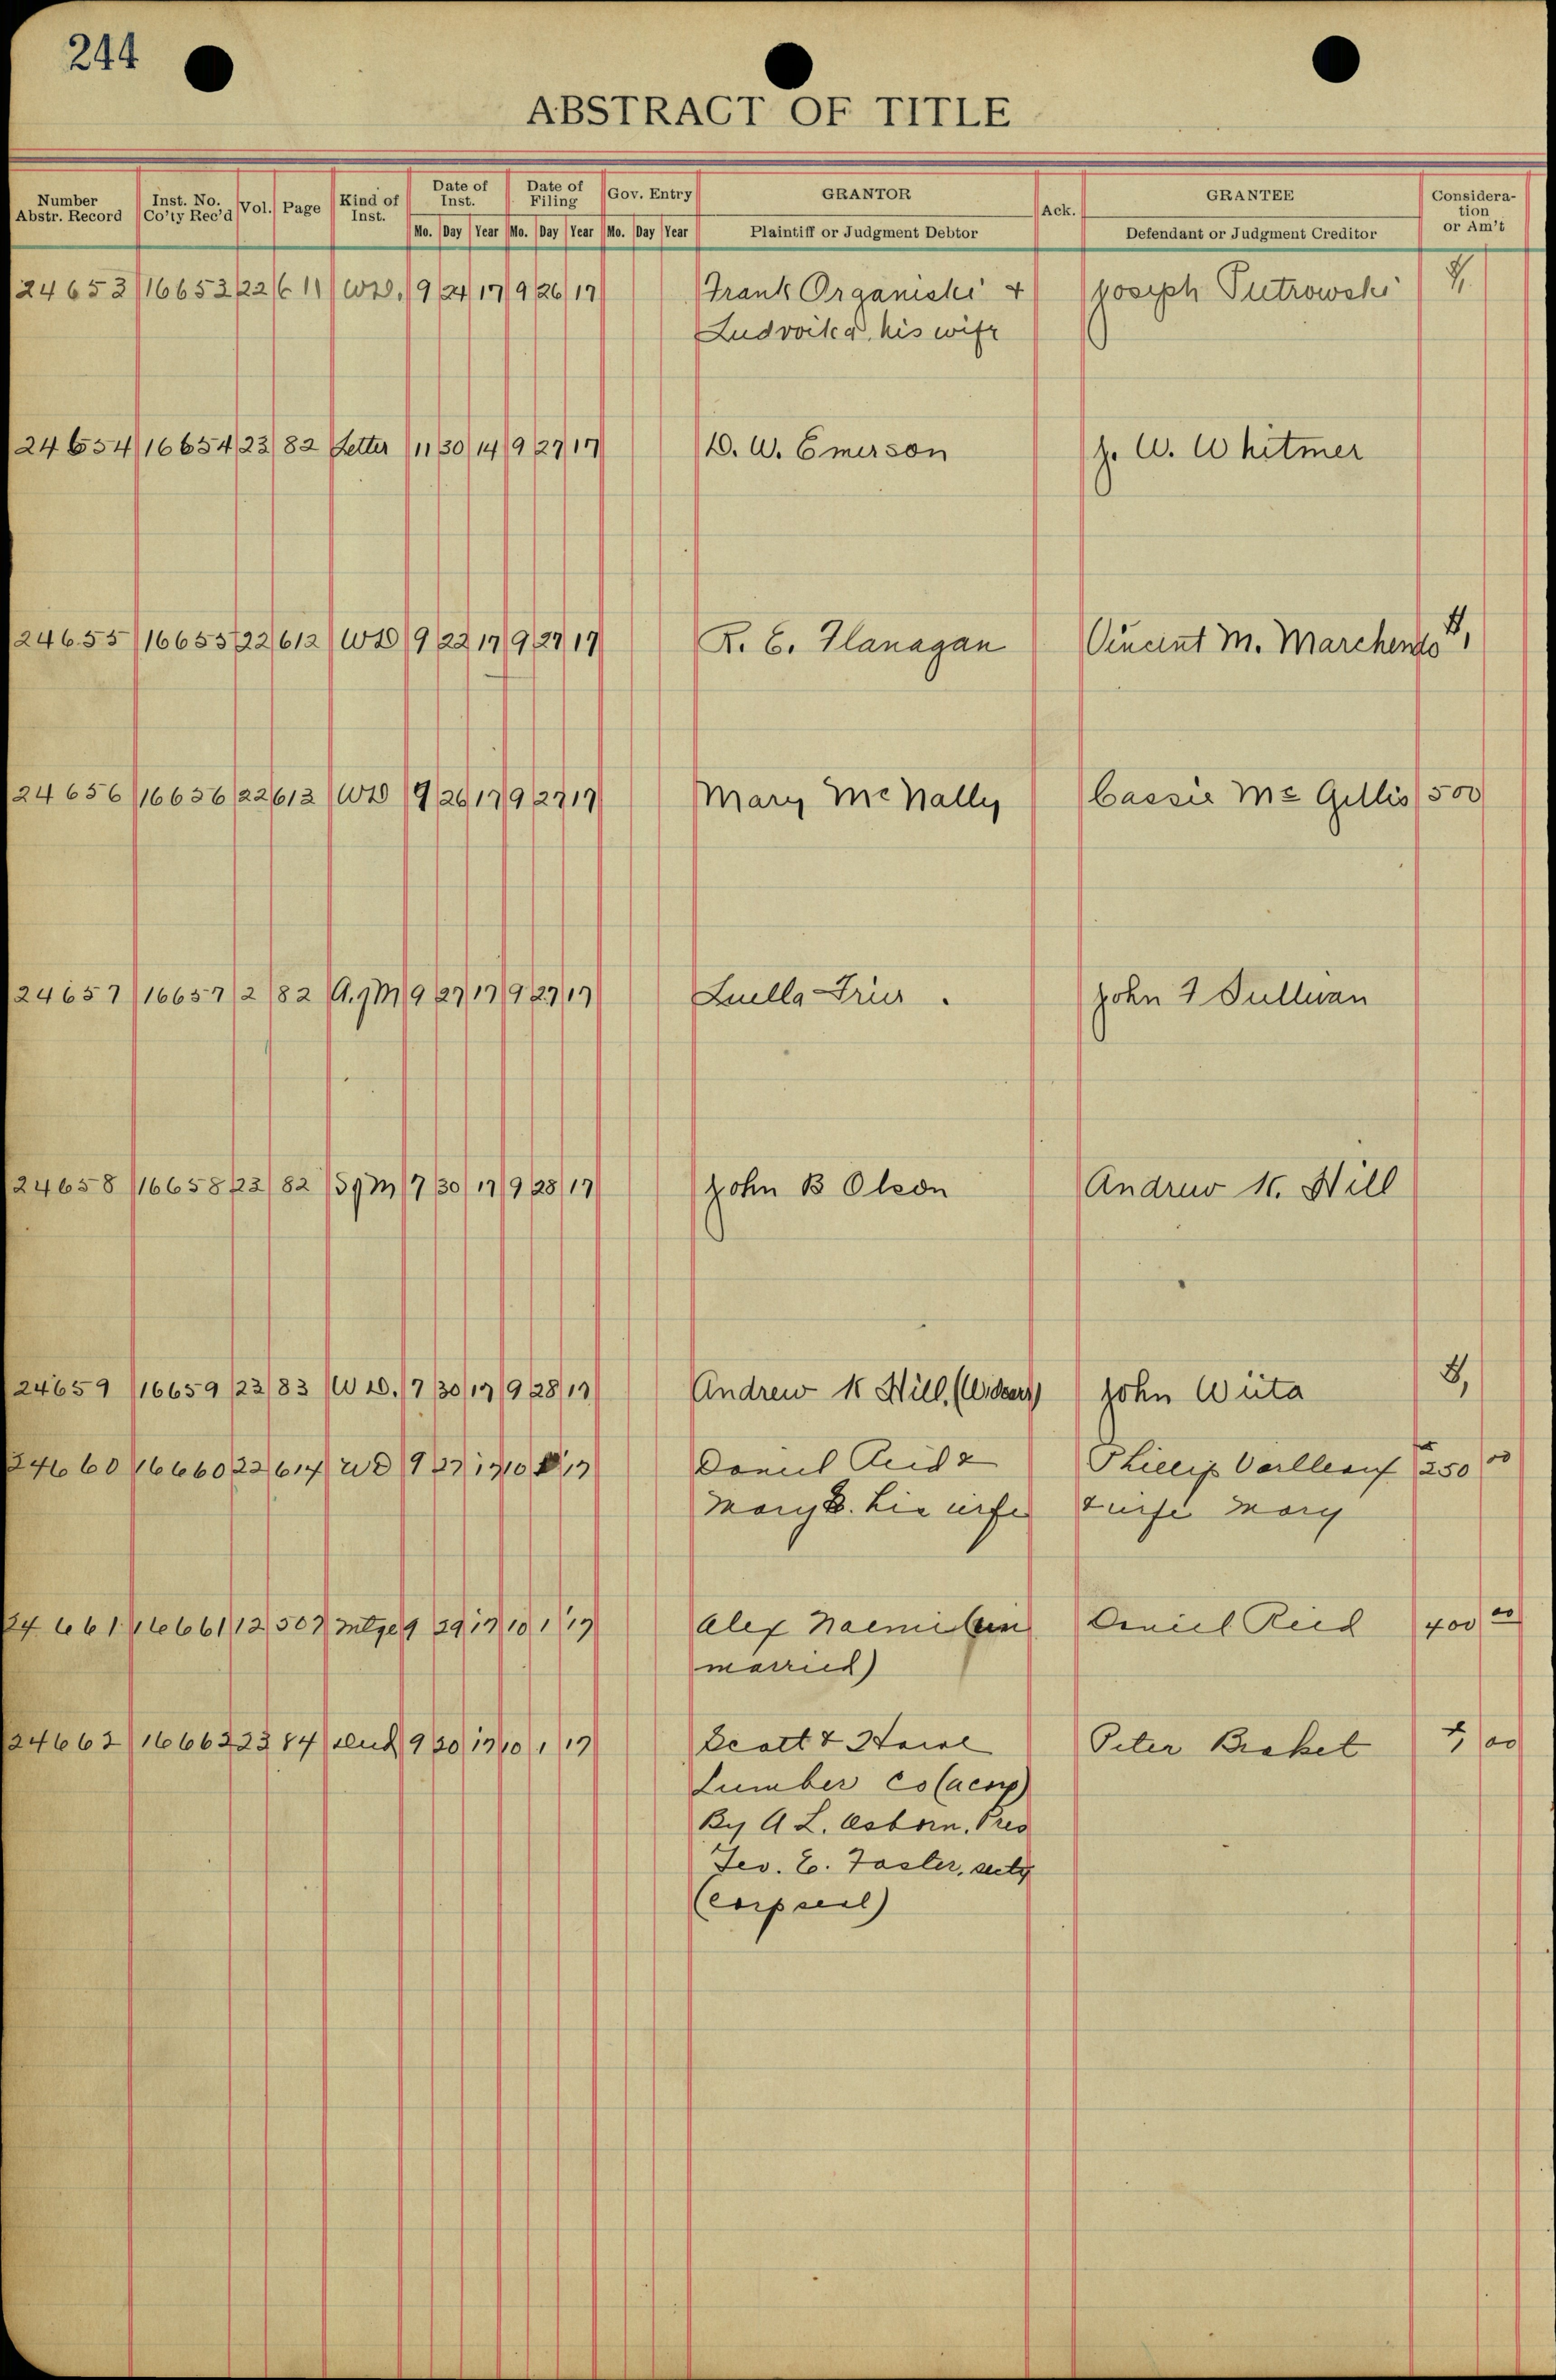 244
ABSTRACT OF TITLE
Number Abstr. Record Inst. No. Co'ty Rec'd Vol. Page Kind of Inst. Date of Inst. Date of Filing Gov. Entry GRANTOR Ack. GRANTEE Consideration or Am't
Mo. Day Year Mo. Day Year Mo. Day Year Plaintiff or Judgment Debtor Defendant or Judgment Creditor
24653 16653 22 611 WD. 9 24 17 9 26 17 Frank Organiski & Joseph Putrowski 1,
Ludvoika, his wife
24654 16654 23 82 Letter 11 30 14 9 27 17 D. W. Emerson J. W. Whitmer
24655 16655 22 612 WD 9 22 17 9 27 17 R. E. Flanagan Vincent M. Marchendo 1,
24656 16656 22 613 WD 9 26 17 9 27 17 Mary McNally Cassie McGillis 500
24657 16657 2 82 9 27 17 9 27 17 Luella John F Sullivan
24658 16658 23 82 SgM 7 30 17 9 28 17 John B Olson Andrew K. Hill
24659 16659 23 83 WD. 7 30 17 9 28 17 Andrew K Hill, John Wiita 1,
24660 16660 22 614 WD 9 27 17 10 1 17 Daniel Reid & Phillip 250 00
Mary B. his wife & wife Mary
24661 16661 12 507 Mtge 9 29 17 10 1 17 Alex Daniel Reid 400 00
married)
24662 16662 23 84 Deed 9 20 17 10 1 17 Scott & Howe Peter 1, 00
Lumber Co (a corp)
By A L. Osborn, Pres
Geo. E. Foster, secty
(corp seal)